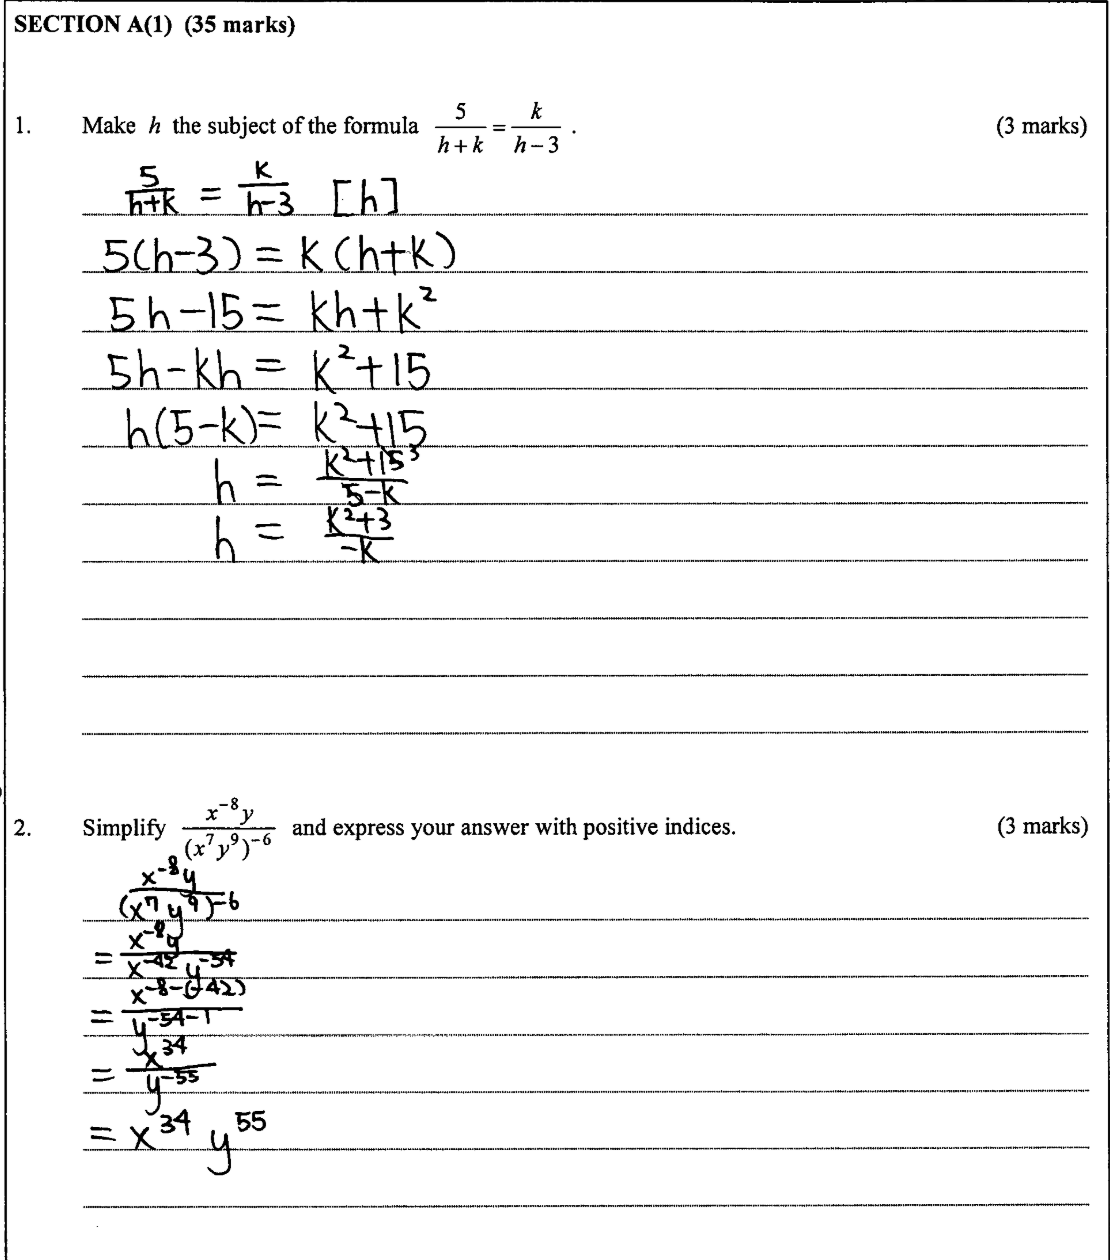 SECTION A(1) (35 marks)
1. Make h the subject of the formula 5/(h+k) = k/(h−3) . (3 marks)
5/(h+k) = k/(h-3) [h]
5(h-3) = k(h+k)
5h-15 = kh+k²
5h-kh = k²+15
h(5-k) = k²+15
h = (k²+15³)/(5-k)
h = (k²+3)/(-k)
2. Simplify x⁻⁸y/(x⁷y⁹)⁻⁶ and express your answer with positive indices. (3 marks)
x⁻⁸y/(x⁷y⁹)⁻⁶
= x⁻⁸y/(x⁻⁴²y⁻⁵⁴)
= x⁻⁸⁻⁽⁻⁴²⁾/y⁻⁵⁴⁻¹
= x³⁴/y⁻⁵⁵
= x³⁴ y⁵⁵